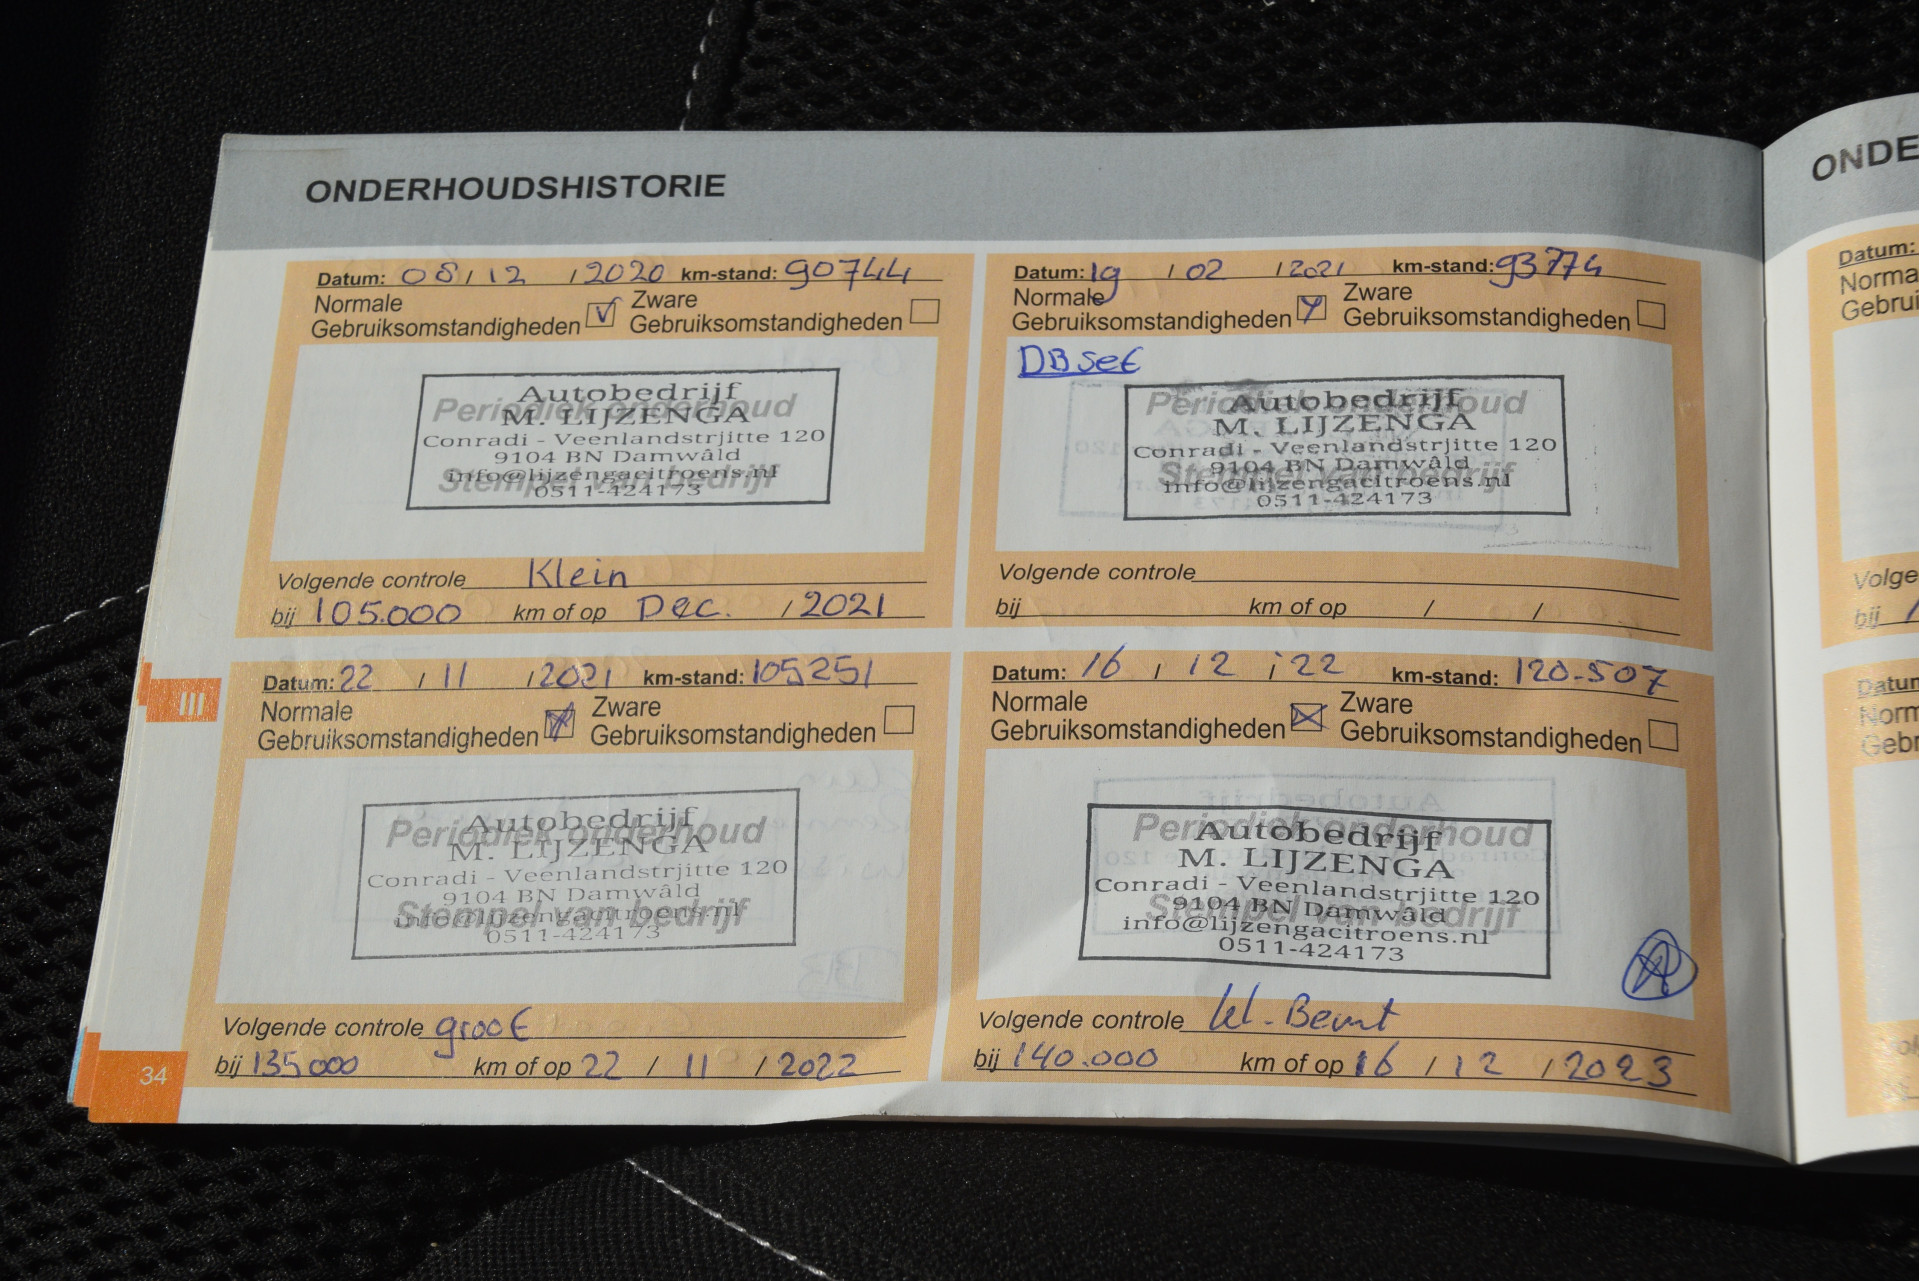 ONDERHOUDSHISTORIE
Datum: 08 / 12 / 2020 km-stand: 90744
Normale Gebruiksomstandigheden V Zware Gebruiksomstandigheden
Periodiek onderhoud
Stempel van bedrijf
Autobedrijf
M. LIJZENGA
Conradi - Veenlandstrjitte 120
9104 BN Damwâld
info@lijzengacitroens.nl
0511-424173
Volgende controle Klein
bij 105.000 km of op Dec. / 2021
Datum: 19 / 02 / 2021 km-stand: 93774
Normale Gebruiksomstandigheden Zware Gebruiksomstandigheden
DB set
Periodiek onderhoud
Stempel van bedrijf
Autobedrijf
M. LIJZENGA
Conradi - Veenlandstrjitte 120
9104 BN Damwâld
info@lijzengacitroens.nl
0511-424173
Volgende controle
bij km of op / /
Datum: 22 / 11 / 2021 km-stand: 105251
Normale Gebruiksomstandigheden Zware Gebruiksomstandigheden
Periodiek onderhoud
Stempel van bedrijf
Autobedrijf
M. LIJZENGA
Conradi - Veenlandstrjitte 120
9104 BN Damwâld
info@lijzengacitroens.nl
0511-424173
Volgende controle groot
bij 135000 km of op 22 / 11 / 2022
Datum: 16 / 12 / 22 km-stand: 120.507
Normale Gebruiksomstandigheden X Zware Gebruiksomstandigheden
Periodiek onderhoud
Stempel van bedrijf
Autobedrijf
M. LIJZENGA
Conradi - Veenlandstrjitte 120
9104 BN Damwâld
info@lijzengacitroens.nl
0511-424173
Volgende controle kl. Beurt
bij 140.000 km of op 16 / 12 / 2023
III
34
ONDE
Datum:
Norma
Gebrui
Volge
bij
Datum
Norm
Gebr